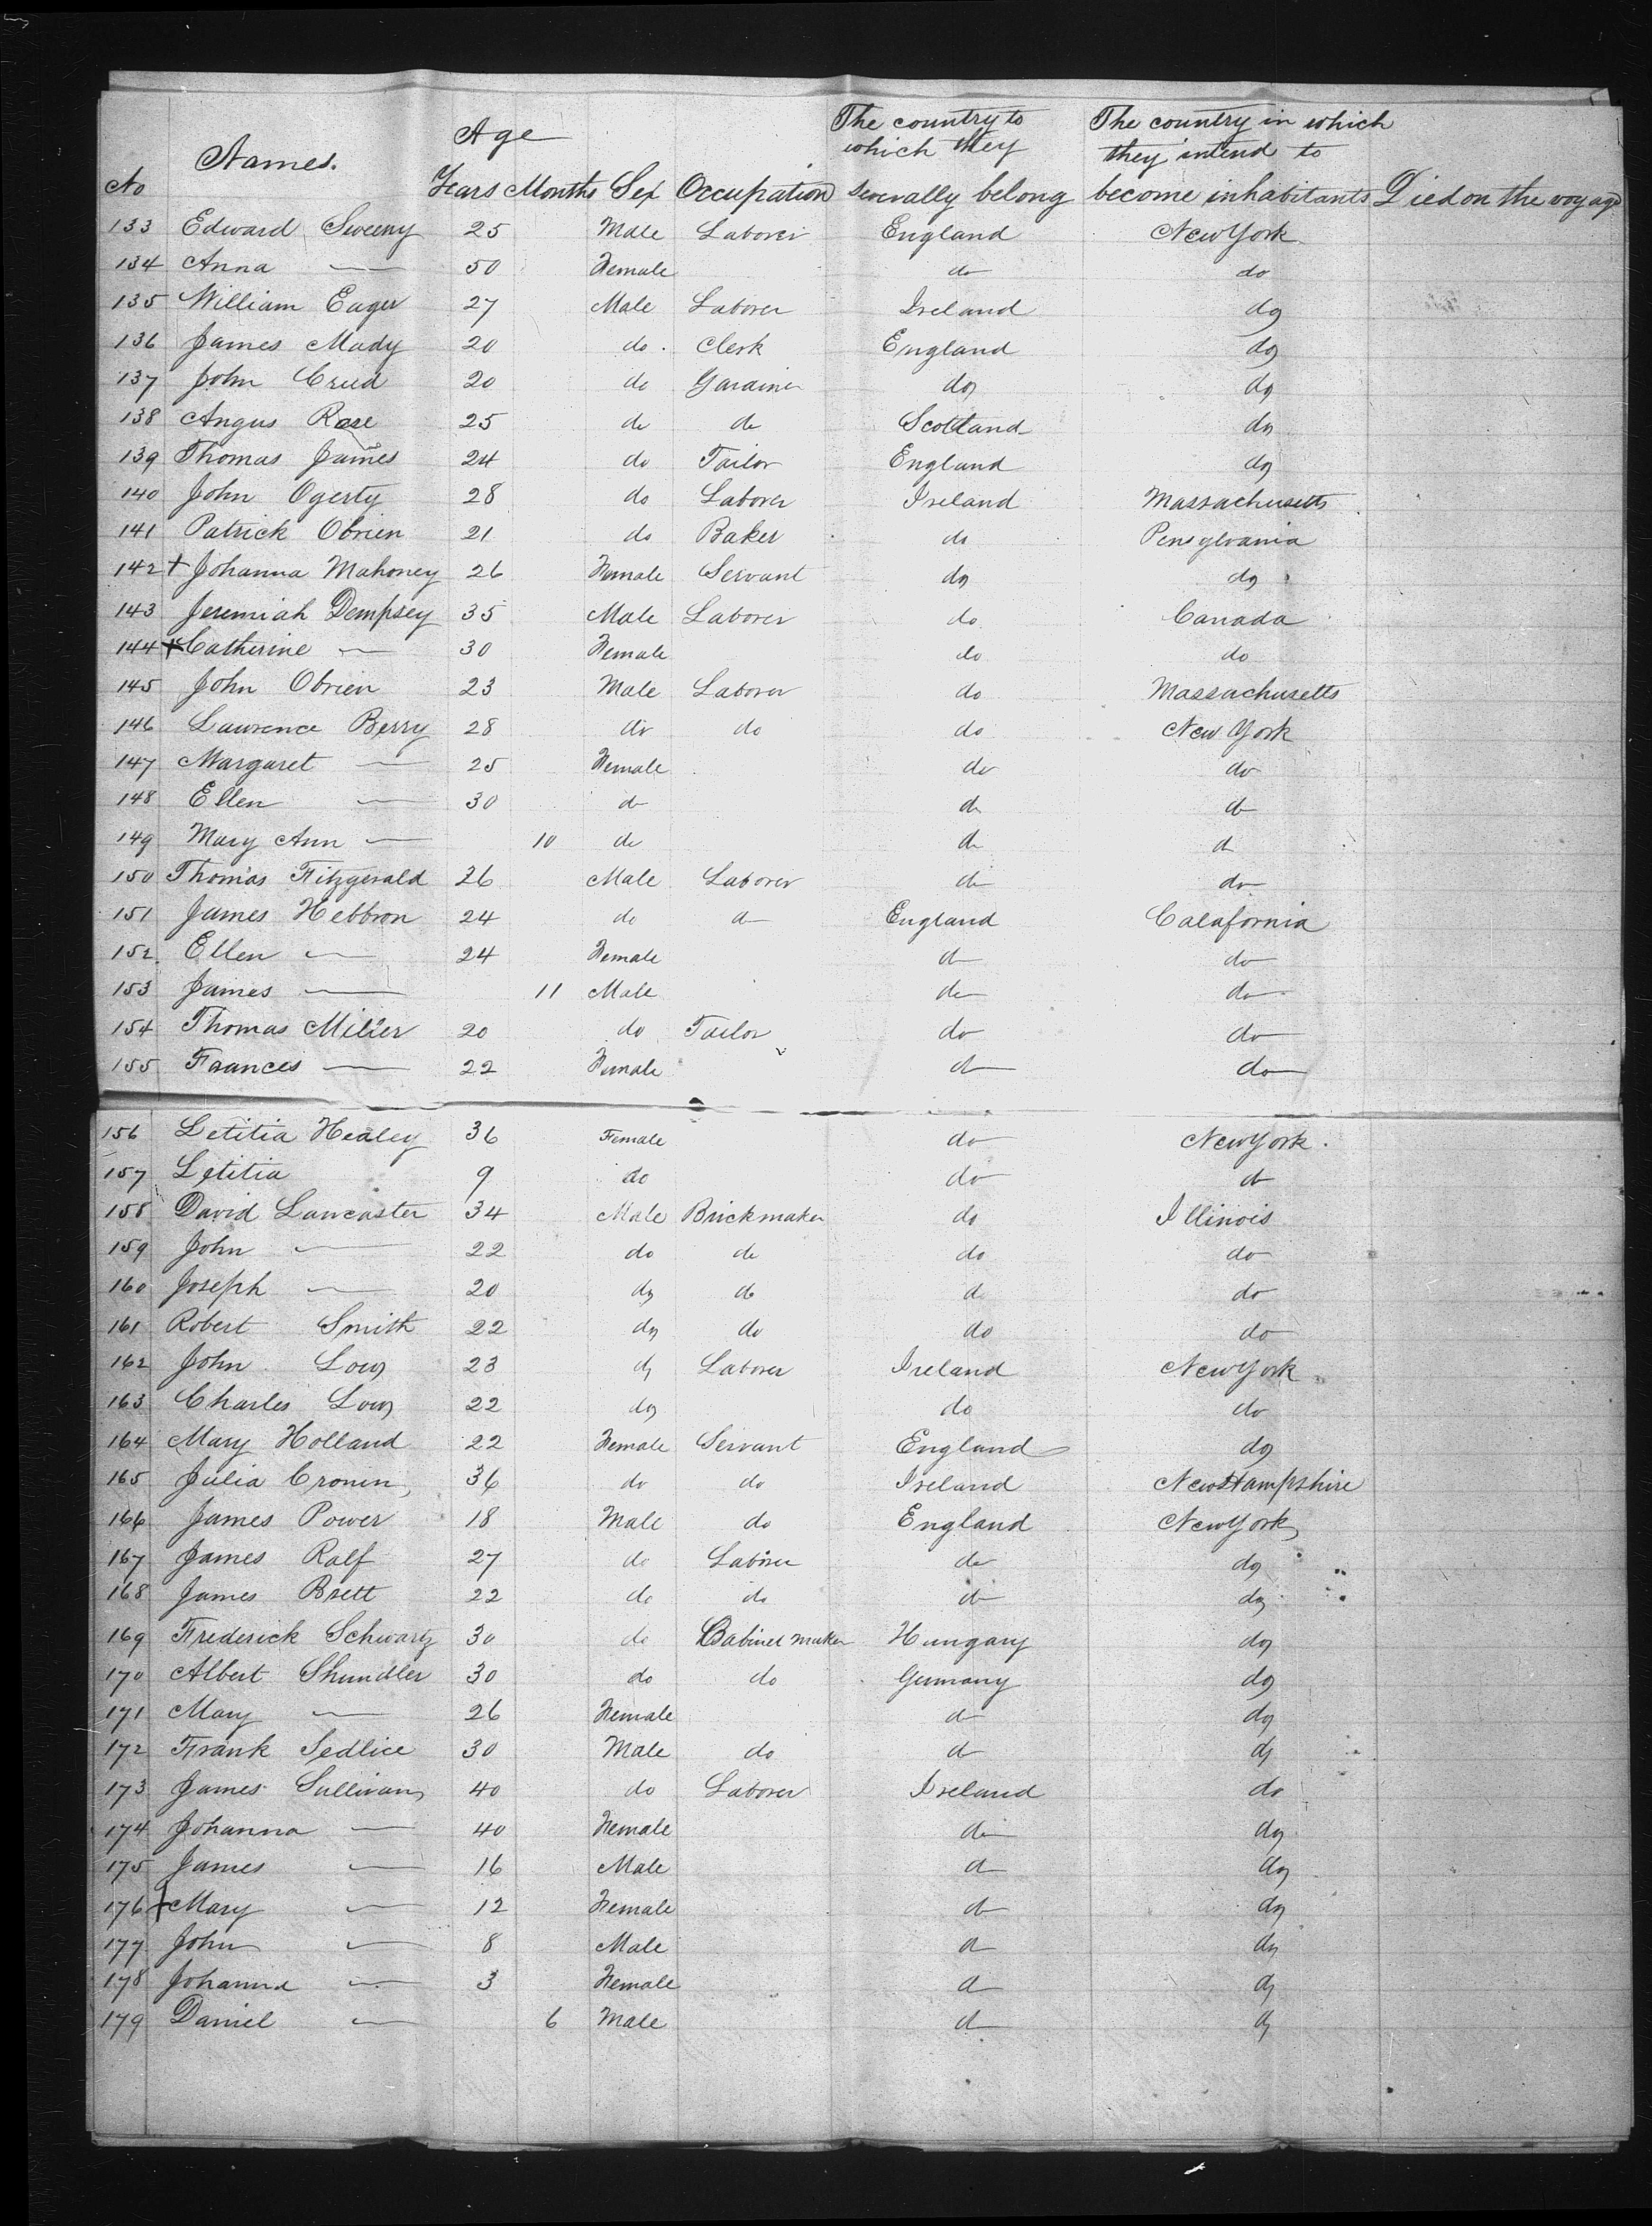 No Names. Age Years Months Sex Occupation The country to which they severally belong The country in which they intend to become inhabitants Died on the voyage
133 Edward Sweeny 25 Male Laborer England New York
134 Anna — 50 Female do do
135 William Eager 27 Male Laborer Ireland do
136 James Mady 20 do Clerk England do
137 John Creed 20 do Gardiner do do
138 Angus Rose 25 do do Scotland do
139 Thomas James 24 do Tailor England do
140 John Ogerty 28 do Laborer Ireland Massachusetts
141 Patrick Obrien 21 do Baker do Pensylvania
142 + Johanna Mahoney 26 Female Servant do do
143 Jeremiah Dempsey 35 Male Laborer do Canada
144 + Catherine — 30 Female do do
145 John Obrien 23 Male Laborer do Massachusetts
146 Lawrence Berry 28 do do do New York
147 Margaret — 25 Female do do
148 Ellen — 30 do do do
149 Mary Ann — 10 do do do
150 Thomas Fitzgerald 26 Male Laborer do do
151 James Hebbron 24 do do England Calafornia
152 Ellen — 24 Female do do
153 James — 11 Male do do
154 Thomas Miller 20 do Tailor do do
155 Frances — 22 Female do do
156 Letitia Healey 36 Female do New York.
157 Letitia 9 do do do
158 David Lancaster 34 Male Brickmaker do Illinois
159 John — 22 do do do do
160 Joseph — 20 do do do do
161 Robert Smith 22 do do do do
162 John Low 23 do Laborer Ireland New York
163 Charles Low 22 do do do
164 Mary Holland 22 Female Servant England do
165 Julia Cronin 36 do do Ireland New Hampshire
166 James Power 18 Male do England New York
167 James Ralf 27 do Laborer do do
168 James Brett 22 do do do do
169 Frederick Schwartz 30 do Cabinet maker Hungary do
170 Albert Shundler 30 do do Germany do
171 Mary — 26 Female do do
172 Frank Sedlice 30 Male do do do
173 James Sullivan 40 do Laborer Ireland do
174 Johanna — 40 Female do do
175 James — 16 Male do do
176 + Mary — 12 Female do do
177 John — 8 Male do do
178 Johanna — 3 Female do do
179 Daniel — 6 Male do do